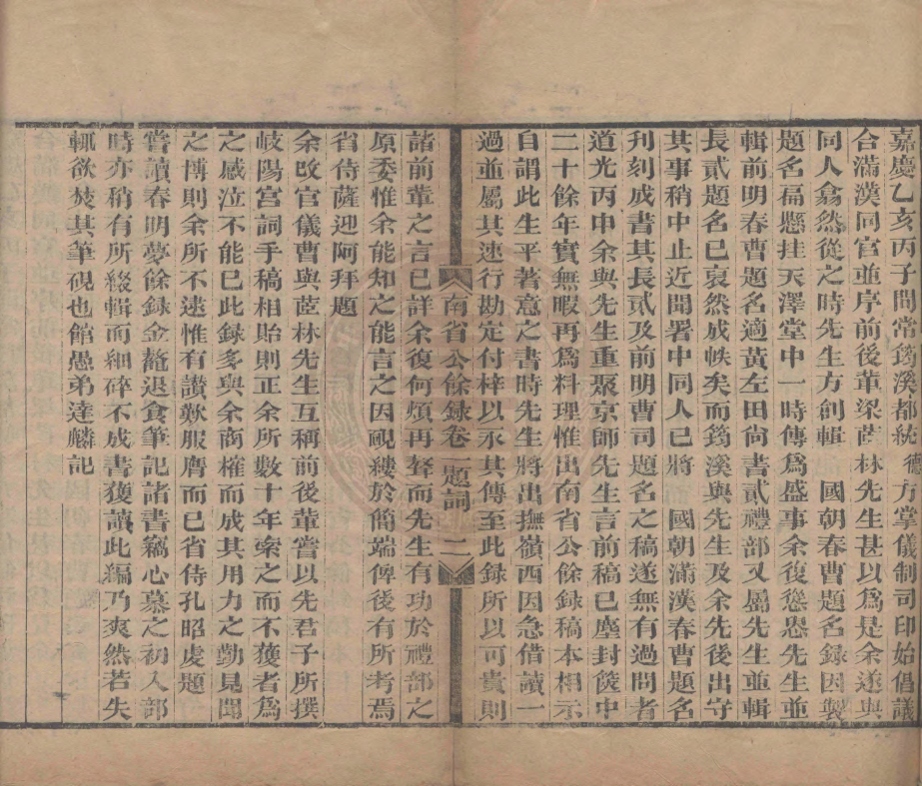 嘉慶乙亥丙子間常筠溪都統德方掌儀制司印始倡議
合滿漢同官並序前後輩梁茝林先生甚以為是余遂與
同人翕然從之時先生方創輯　國朝春曹題名錄因製
題名福懸挂天澤堂中一時傳為盛事余復慫恿先生並
輯前明春曹題名適黃左田尚書貳禮部又屬先生並輯
長貳題名已裒然成帙矣而筠溪與先生及余先後出守
其事稍中止近聞署中同人已將　國朝滿漢春曹題名
刋刻成書其長貳及前明曹司題名之稿遂無有過問者
道光丙申余與先生重聚京師先生言前稿已塵封篋中
二十餘年實無暇再為料理惟出南省公餘錄稿本相示
自謂此生平著意之書時先生將出撫嶺西因急借讀一
過並屬其速行勘定付梓以永其傳至此錄所以可貴則
南省公餘錄卷一題詞　二
諸前輩之言已詳余復何煩再贅而先生有功於禮部之
原委惟余能知之能言之因覼縷於簡端俾後有所考焉
省侍薩迎阿拜題
余改官儀曹與茝林先生互稱前後輩嘗以先君子所撰
岐陽宮詞手稿相貽則正余所數十年索之而不獲者為
之感泣不能已此錄多與余商榷而成其用力之勤見聞
之博則余所不逮惟有讚歎服膺而已省侍孔昭虔題
嘗讀春明夢餘錄金薤退食筆記諸書竊心慕之初入部
時亦稍有所綴輯而細碎不成書獲讀此編乃爽然若失
輒欲焚其筆硯也館愚弟達麟記